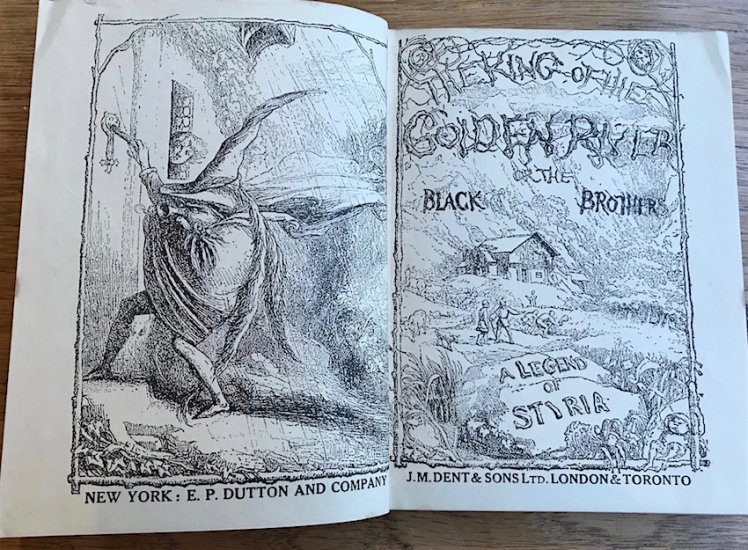 NEW YORK: E. P. DUTTON AND COMPANY
THE KING OF THE
GOLDEN RIVER
OR THE
BLACK BROTHERS
A LEGEND
OF
STYRIA
J. M. DENT & SONS LTD. LONDON & TORONTO